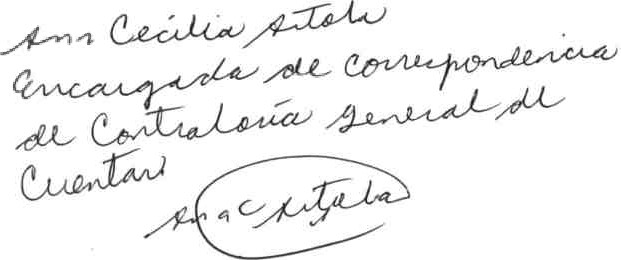 Ana Cecilia Artola
Encargada de correspondencia
de Contraloría General de
Cuentas
Ana C Artola